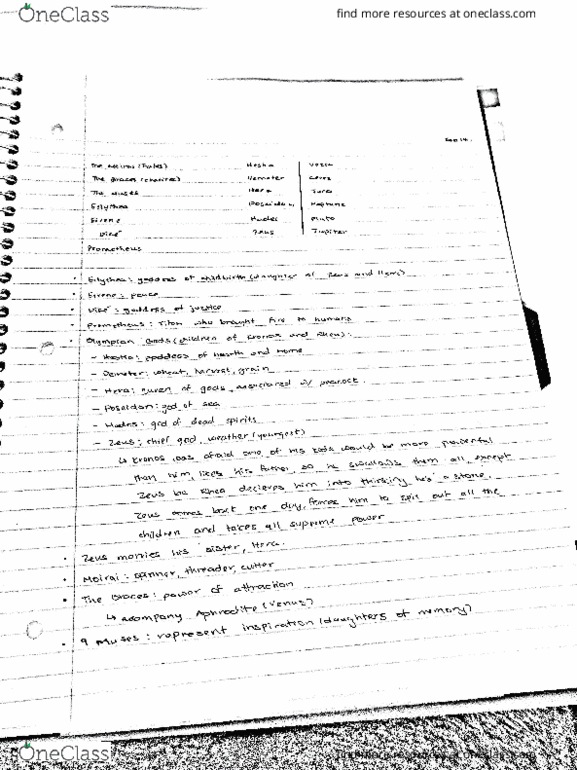 OneClass
find more resources at oneclass.com
The Moirai (Fates) Hestia Vesta
The Graces (Charites) Demeter Ceres
The Muses Hera Juno
Eilythea Poseidon Neptune
Eirene Hades Pluto
Dike Zeus Jupiter
Prometheus
• Eilythea: goddess of childbirth (daughter of Zeus and Hera)
• Eirene: peace
• Dike: goddess of justice
• Prometheus: Titan who brought fire to humans
• Olympian Gods (children of Kronos and Rhea):
- Hestia: goddess of hearth and home
- Demeter: wheat, harvest, grain
- Hera: queen of gods, associated w/ peacock.
- Poseidon: god of sea
- Hades: god of dead spirits
- Zeus: chief god, weather (youngest)
↳ Kronos was afraid one of his kids would be more powerful
than him, likes his father so he swallows them all, except
Zeus bc Rhea decieves him into thinking he's a stone.
Zeus comes back one day, forces him to spit out all the
children and takes all supreme power
• Zeus marries his sister, Hera.
• Moirai: spinner, threader, cutter
• The Graces: power of attraction
↳ acompany Aphrodite (Venus)
• 9 Muses: represent inspiration (daughters of memory)
OneClass
find more resources at oneclass.com